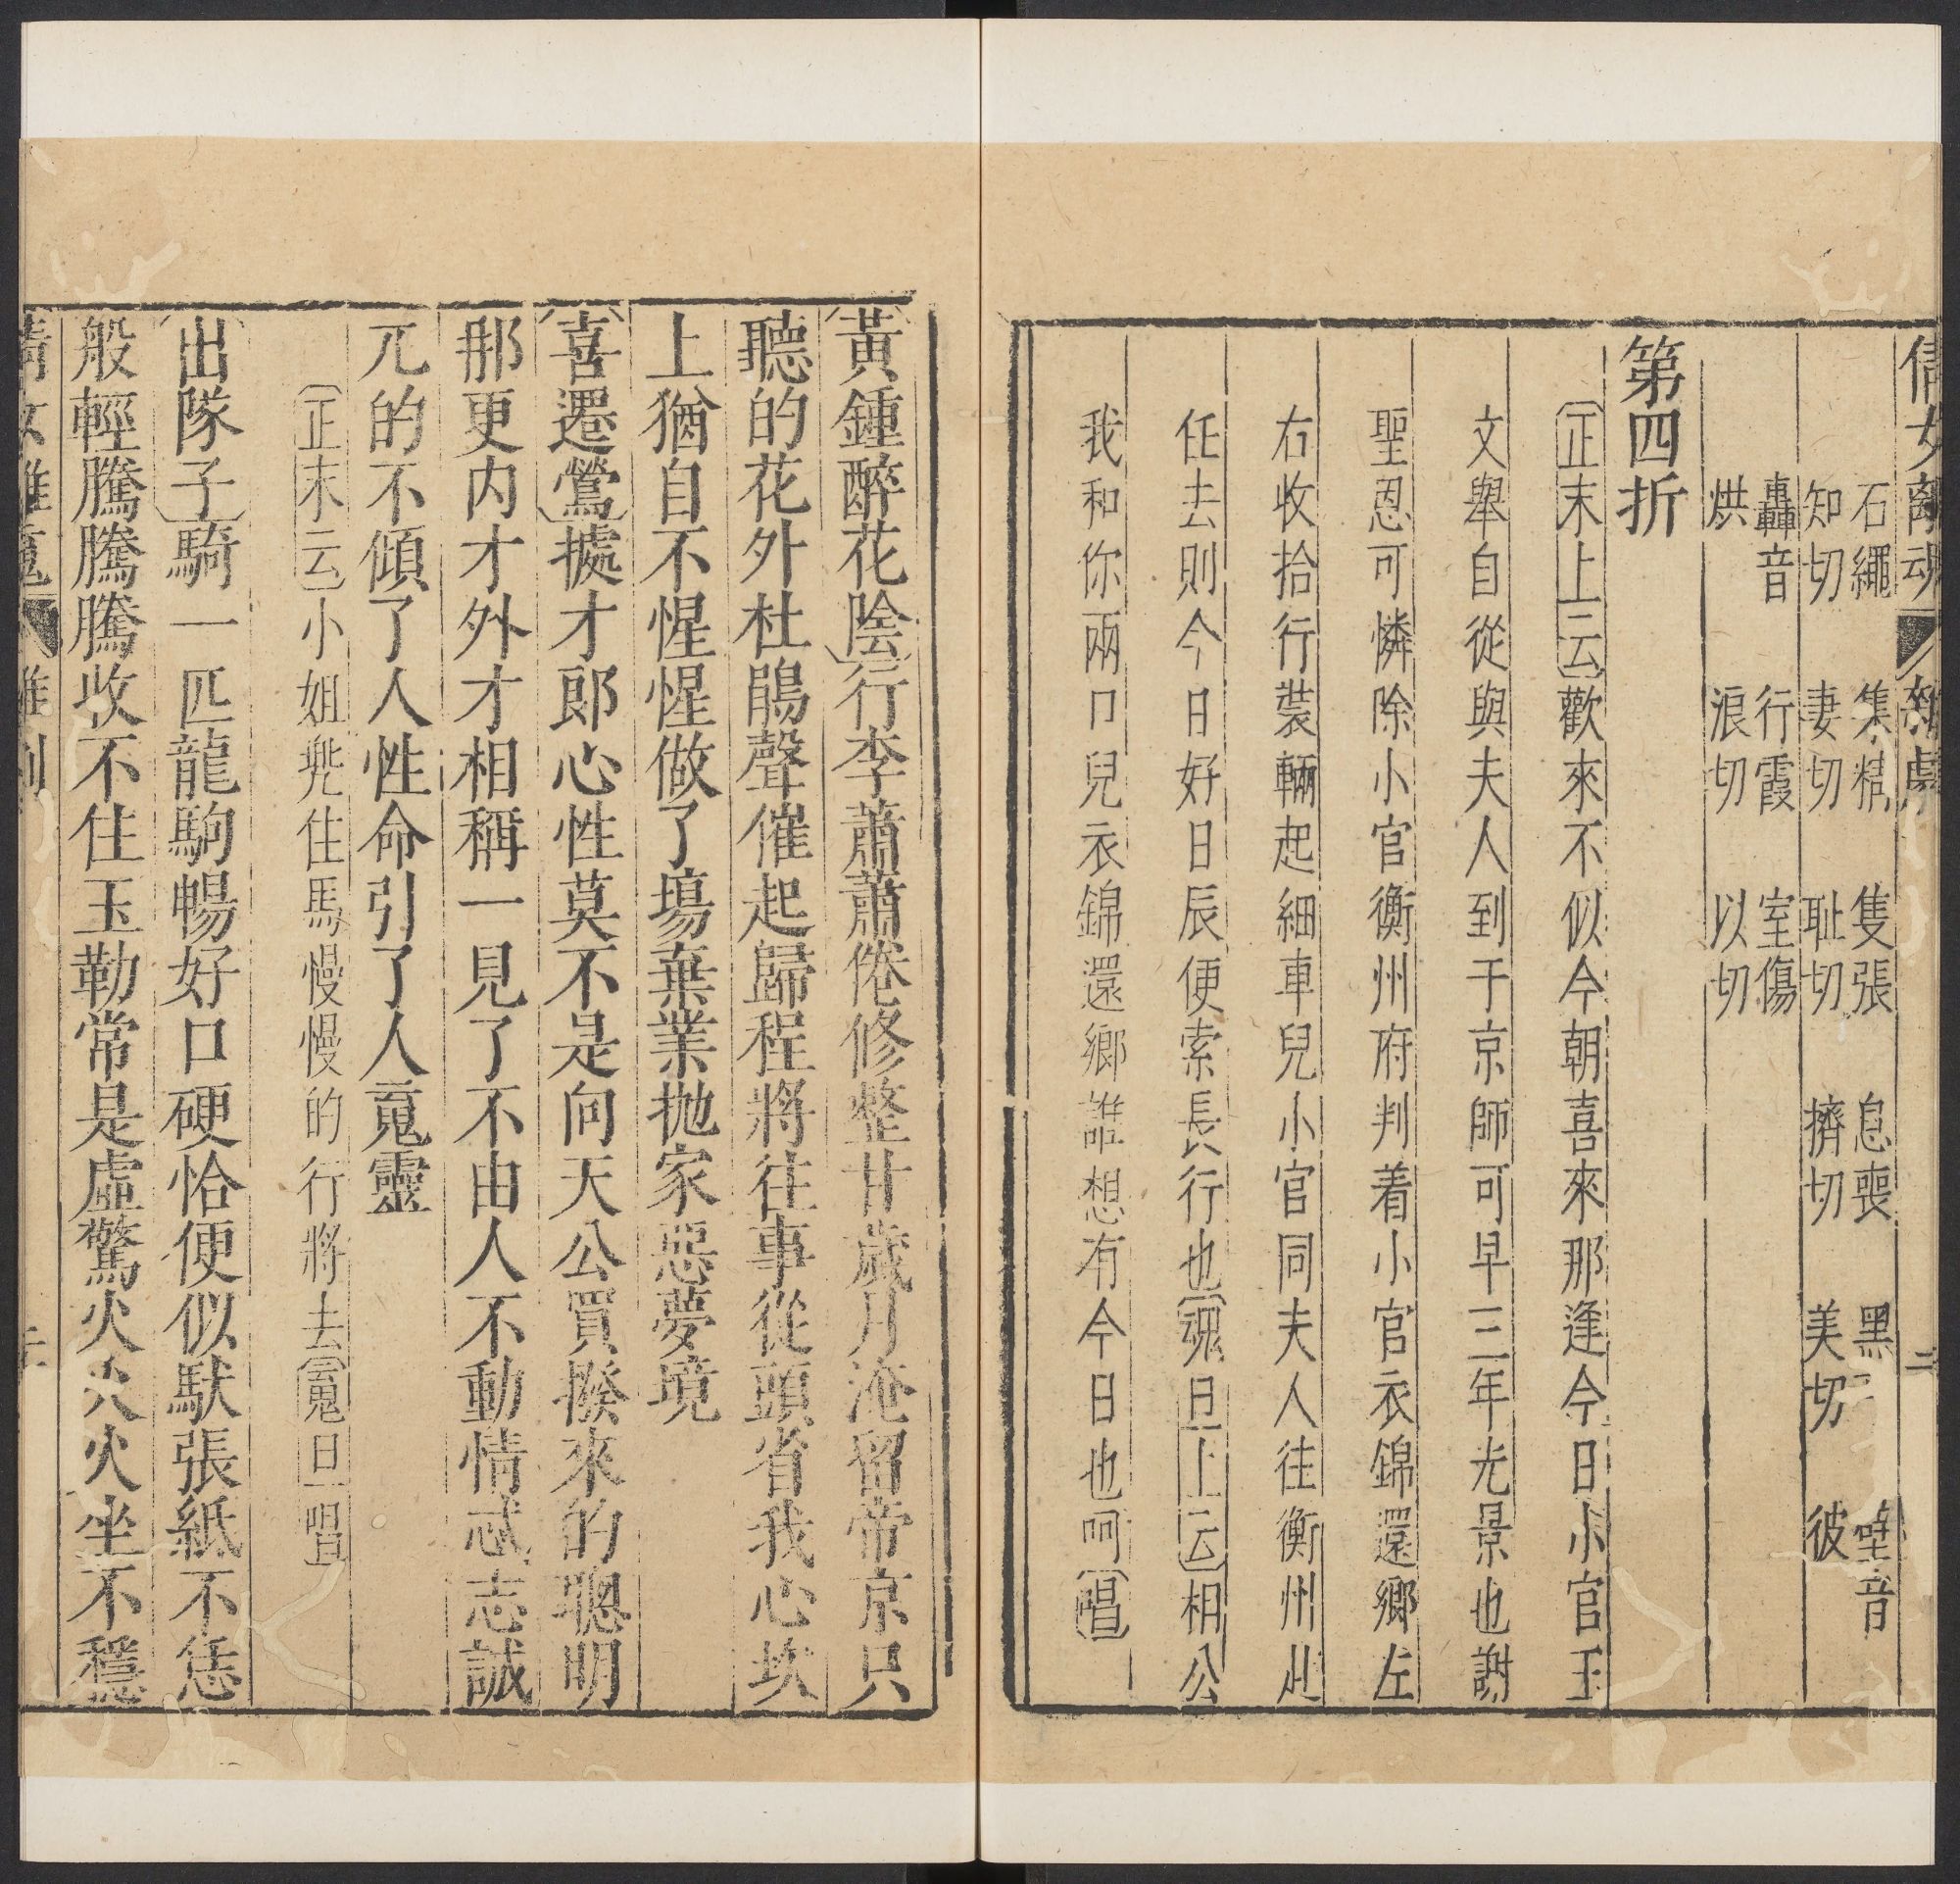 倩女離魂 雜劇
石繩知切 集賫妻切 隻張耻切 息喪擠切 黑美切 彼
轟音烘 行霞浪切 室傷以切
第四折
正末上云歡來不似今朝喜來那逢今日小官王
文舉自從與夫人到于京師可早三年光景也謝
聖恩可憐除小官衡州府判着小官衣錦還鄉左
右收拾行裝輛起細車兒小官同夫人往衡州赴
任去則今日好日辰便索長行也魂旦上云相公
我和你兩口兒衣錦還鄉誰想有今日也呵唱
黃鍾醉花陰行李蕭蕭倦修整甘歲月淹留帝京只
聽的花外杜鵑聲催起歸程將往事從頭省我心坎
上猶自不惺惺做了場棄業拋家惡夢境
喜遷鶯據才郎心性莫不是向天公買撥來的聰明
那更內才外才相稱一見了不由人不動情忒志誠
兀的不傾了人性命引了人魂靈
正末云小姐兠住馬慢慢的行將去魂旦唱
出隊子騎一匹龍駒暢好口硬恰便似馱張紙不恁
般輕騰騰騰收不住玉勒常是虛驚火火火坐不穩